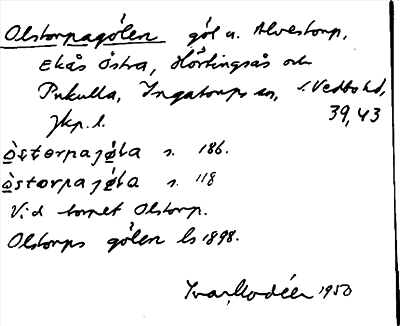 Olstorpagölen göl u. Alvestorp,
Ekås Östra, Hörtingsås och
Pukulla, Ingatorps sn, s. Vedbo hd,
Jkp. l. 39,43
òstorpajø̀la s. 186.
òstorpajø̀la s. 118
Vid torpet Olstorp.
Olstorps gölen ls 1898.
Ivar Modéer 1950